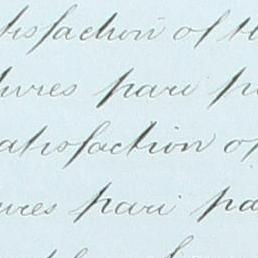 tisfaction of th
tures pari pa
atisfaction of
ures pari pa